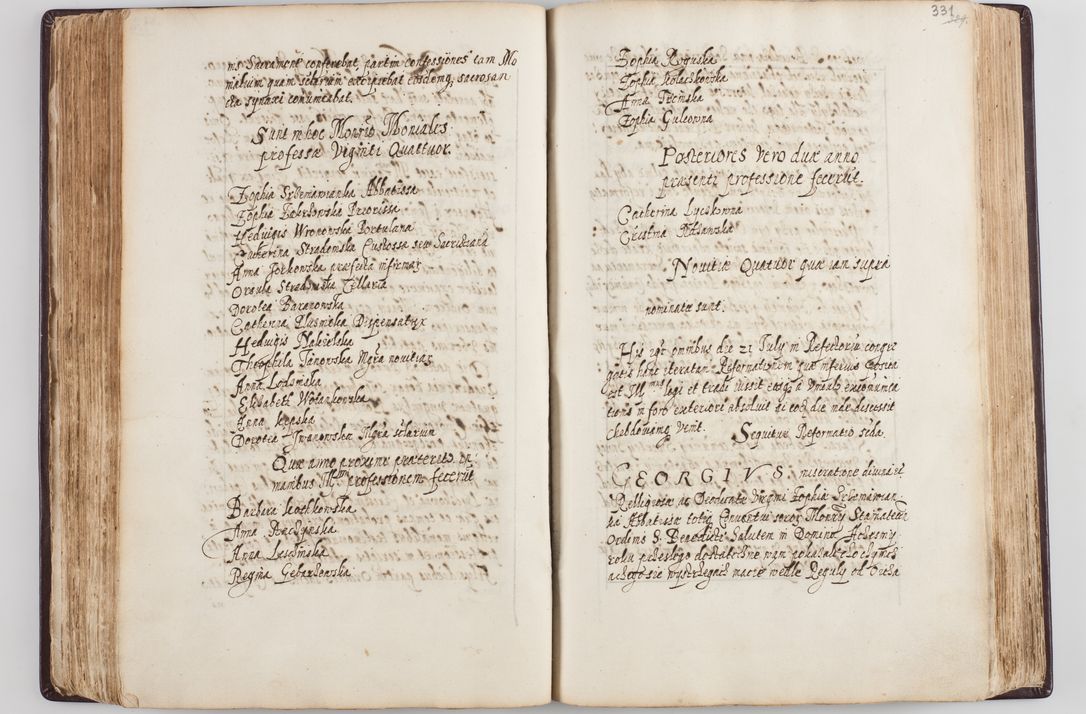 mo Sacramenti conferebat, partim confessiones tam Mo
nialium quam scholarium excipiebat easdemq, sacrosan
cta synaxi comunicabat.
Sunt in hoc Monrio Moniales
professæ Viginti Quattuor.
Zophia Srzeniawianka Abbatissa
Zophia Zakrzowska Priorissa
Hedvigis Wronowska Portulana
Catherina Stradomska Custossa seu Sacristiana
Anna Jorkowska præfecta infirmar
Orsula Stradomska Cellaria
Dorotea Baranowska
Catherina Plusnicka Dispensatrix
Hedvigis
Theophila Janowska Mgra novitiar
Anna Lodzinska
Elisabeth Wolankowska
Anna Kepska
Dorotea Iwanowska Mgra scholarum
Quæ anno proxime præterito in
manibus Illmi professionem fecerūt
Barbara Kochkowska
Anna Raczynska
Anna Lesczinska
Regina Gebarzowska
331
Zophia Roguska
Zophia
Anna Tecinska
Zophia Guleowna
Posteriores vero duæ anno
præsenti professione fecerūt
Catherina Lyczkowna
Christina
Novitiæ Quatuor quæ iam supra
nominatæ sunt.
His igr omnibus die 21 July in Refectoriū congre
gatis hanc iteratam Reformationem quæ inferius posita
est Illmus legi et tradi iussit easq a vinculo excomunica
tionis in foro exteriori absoluit ac eod die inde discessit
venit. Sequitur Reformatio scda.
GEORGIVS miseratione divina etc
Relligiosæ ac Deodicatæ Virgini Zophiæ Srzeniawian
ka Abbatissæ totiq Conventui soror Monry Staniatecē
Ordinis S. Benedicti Salutem in Domino. Achesmy
roku przeszlego dostatecznie wam pokazali